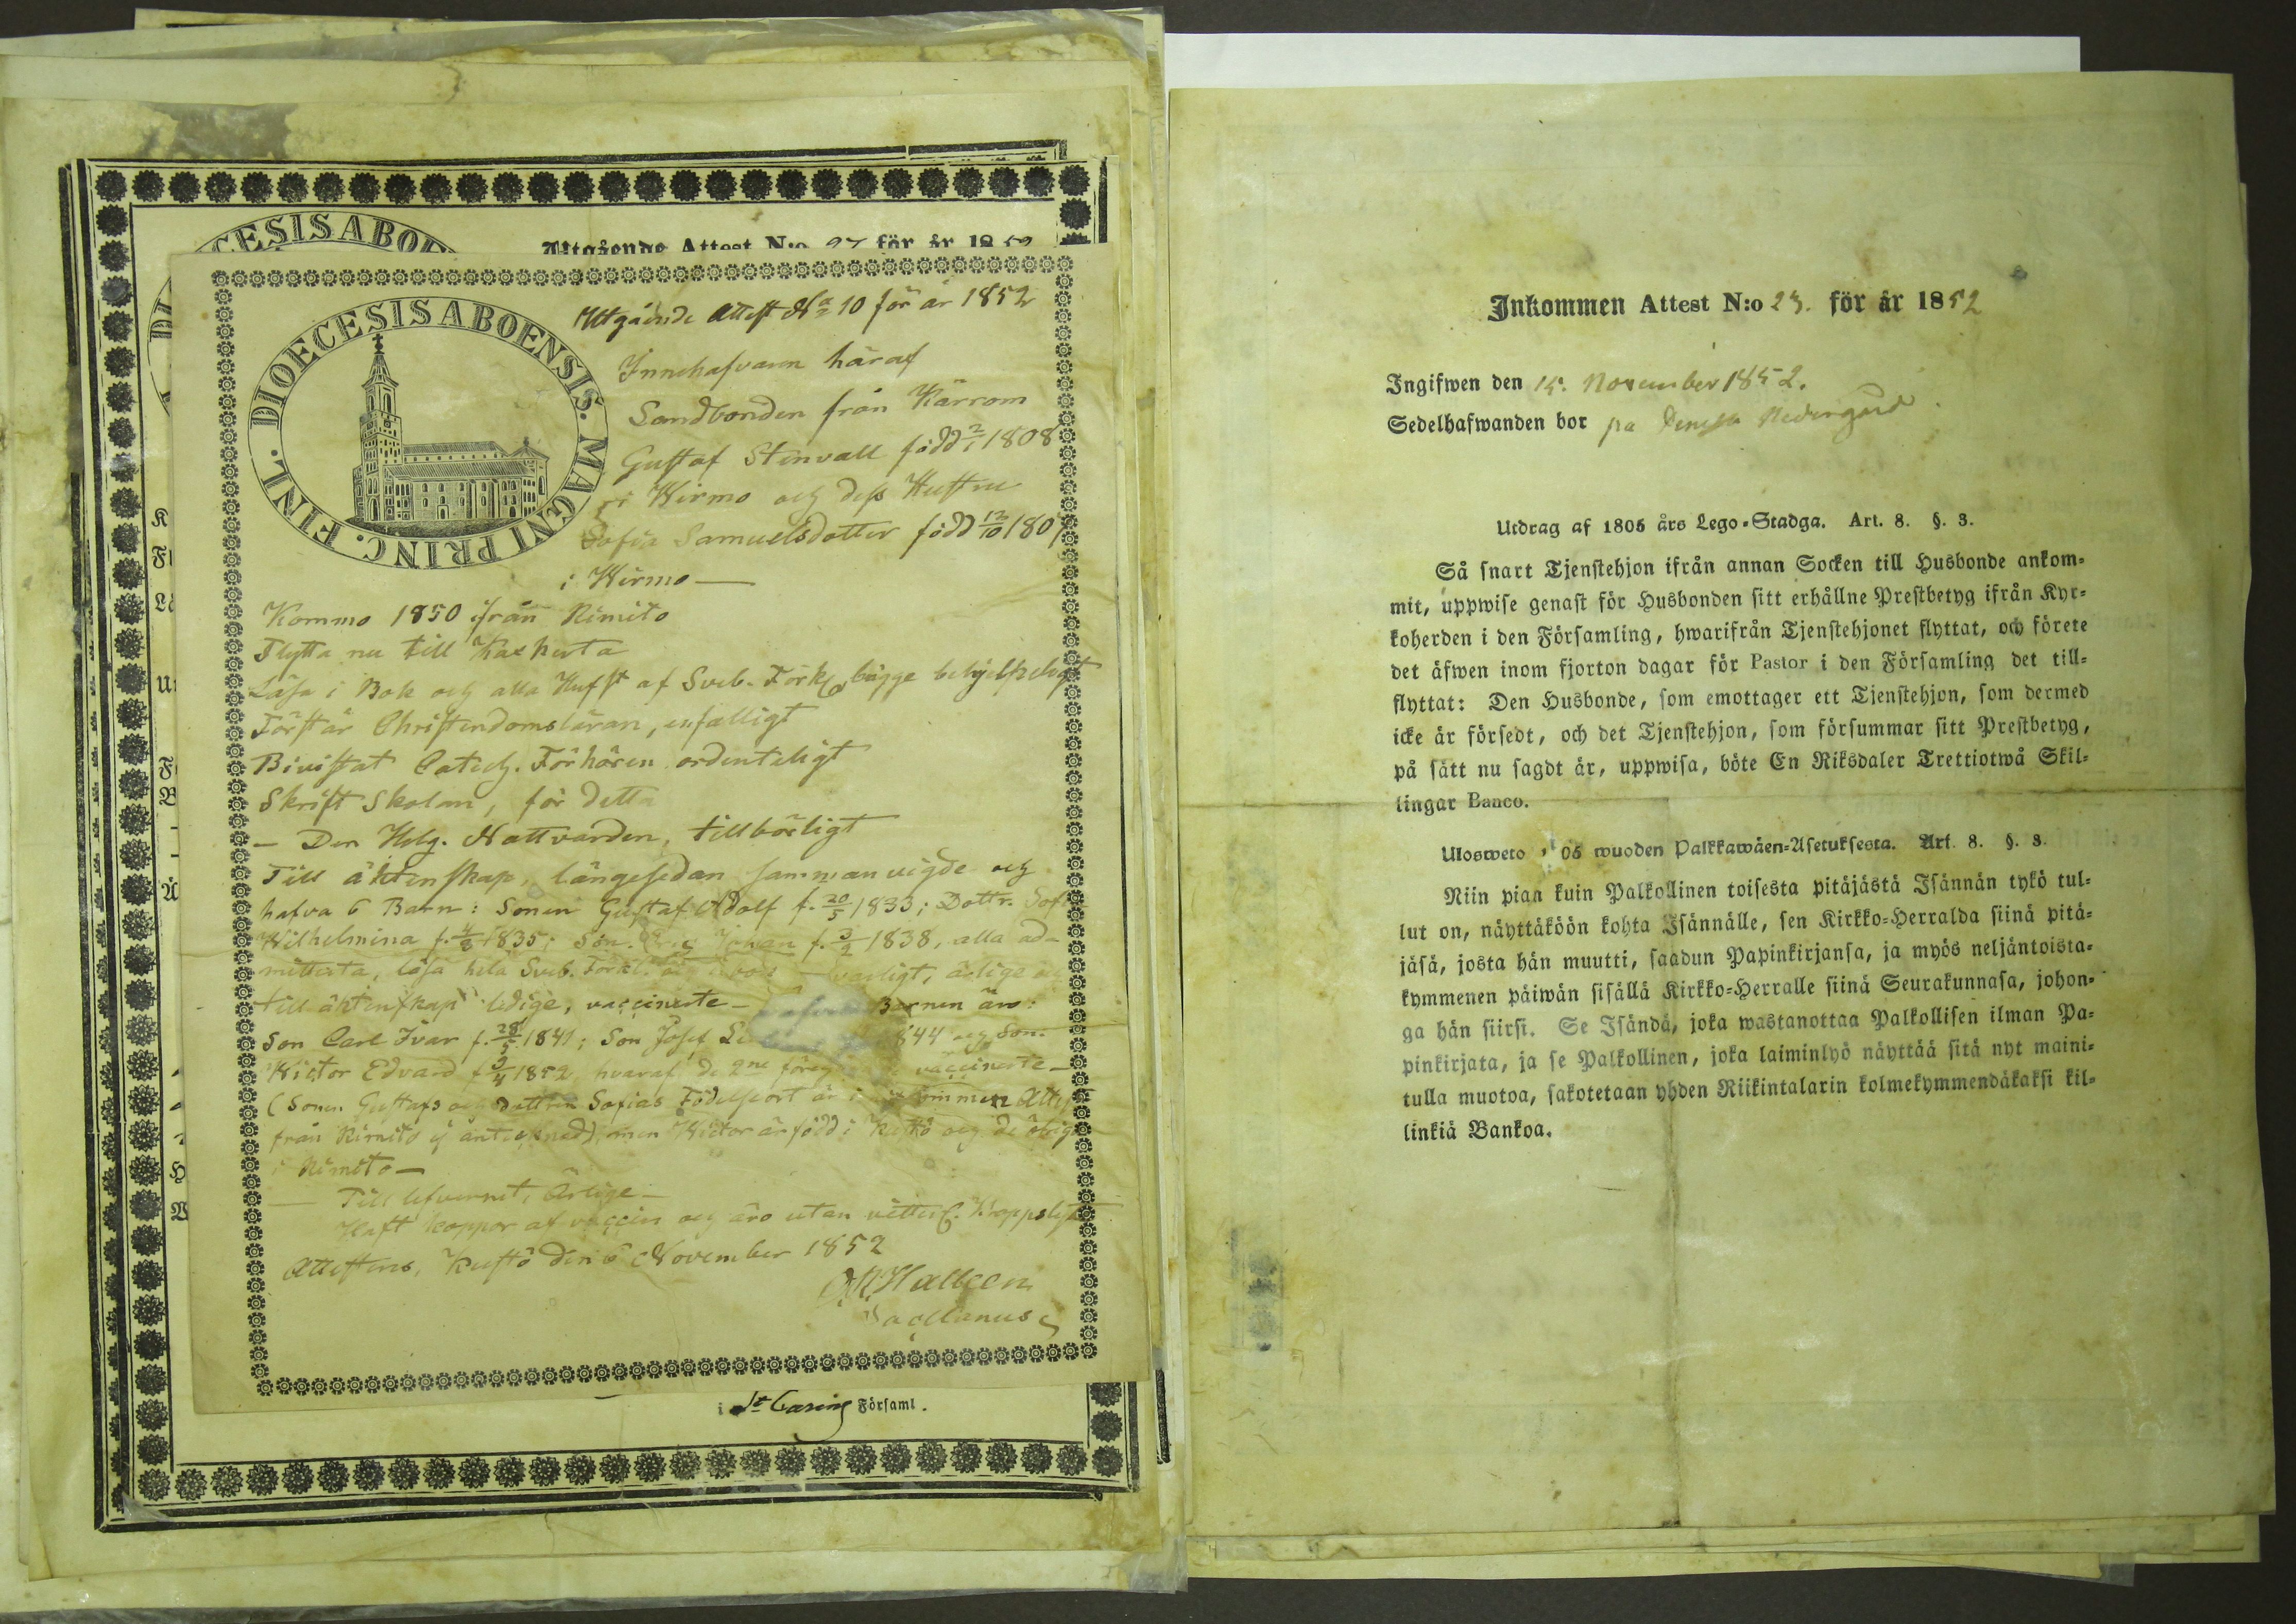 DIOECESIS ABO
Utgående Attest N:o 27 för år 1852
DIOECESIS ABOENSIS. MAGNI PRINC. FINL.
Utgående Attest No 10 för år 1852
Innehafvaren häraf
Landbonden från Kärrom
Gustaf Stenvall född 2/1 1808
i Wirmo och dess Hustru
Sofia Samuelsdotter född 12/10 180
i Wirmo —
Kommo 1850 ifrån Rimito
Flytta nu till
Läsa i Bok och alla Hufst af Sveb. Förkl. bägge behjelpeligt
Förstår Christendomsläran, enfalligt
Bivistat Catech. Förhören ordenteligt
Skrift Skolan, för detta
— Den Helg. Nattvarden, tillbörligt
Till äktenskap, längesedan sammanvigde och
hafva 6 Barn: Sonen Gustaf Adolf f. 20/5 1833; Dottr. Sof
Wilhelmina f. 4/8 1835; Son. Johan f. 3/2 1838, alla ad-
mitterta läsa hela Sveb. Förkl. ärlige
till äktenskap ledige, vaccinerte — Barnen äro:
Son Carl Ivar f. 28/5 1841; Son Josef 1844 och Son.
Victor Edvard f. 3/4 1852 hvaraf de 2ne föreg vaccinerte —
(Sonen Gustafs och dottren Sofias Födelseort är i inkommen Attest
från Rimito ej antecknad) men Victor är född i Kustö och de öfrige
i Rimito —
— Till lefvernet, Ärlige —
Haft koppor af vaccin och äro utan vitterl. Kroppslyte
Attesteras, Kustö den 6 November 1852
Halleen
Sacellanus
i St Carins Församl.
Inkommen Attest N:o 23. för år 1852
Ingifwen den 15. November 1852.
Sedelhafwanden bor på Nedergård.
Utdrag af 1805 års Lego-Stadga. Art. 8. §. 3.
Så snart Tjenstehjon ifrån annan Socken till Husbonde ankom-
mit, uppwise genast för Husbonden sitt erhållne Prestbetyg ifrån Kyr-
koherden i den Församling, hwarifrån Tjenstehjonet flyttat, och förete
det äfwen inom fjorton dagar för Pastor i den Församling det till-
flyttat: Den Husbonde, som emottager ett Tjenstehjon, som dermed
icke är försedt, och det Tjenstehjon, som försummar sitt Prestbetyg,
på sätt nu sagdt är, uppwisa, böte En Riksdaler Trettiotwå Skil-
lingar Banco.
Ulosweto 05 wuoden Palkkawäen-Asetuksesta. Art. 8. §. 3.
Niin pian kuin Palkollinen toisesta pitäjästä Isännän tykö tul-
lut on, näyttäköön kohta Isännälle, sen Kirkko-Herralda siinä pitä-
jäsä, josta hän muutti, saadun Papinkirjansa, ja myös neljäntoista-
kymmenen päiwän sisällä Kirkko-Herralle siinä Seurakunnasa, johon-
ga hän siirsi. Se Isändä, joka wastanottaa Palkollisen ilman Pa-
pinkirjata, ja se Palkollinen, joka laiminlyö näyttää sitä nyt maini-
tulla muotoa, sakotetaan yhden Riikintalarin kolmekymmendäkaksi kil-
linkiä Bankoa.